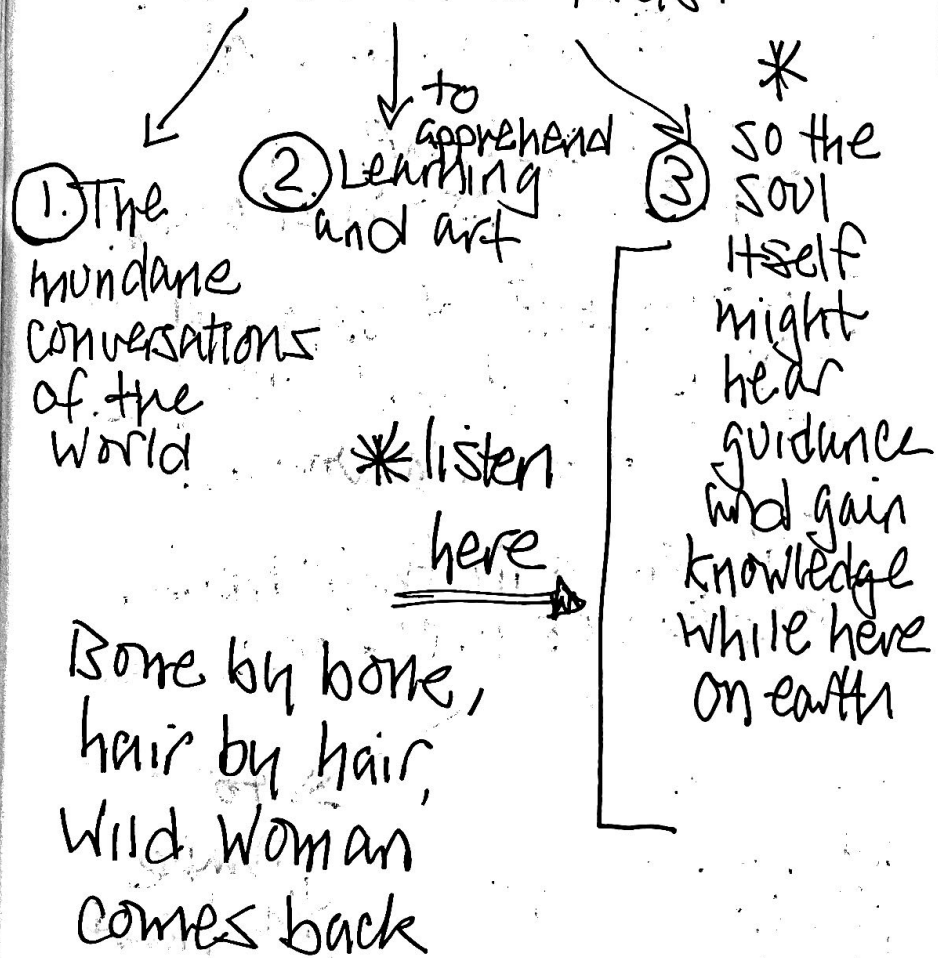 1. The
mundane
conversations
of the
world
to
apprehend
2. Learning
and art
*
3 so the
soul
itself
might
hear
guidance
and gain
knowledge
while here
on earth
* listen
here
Bone by bone,
hair by hair,
Wild Woman
comes back